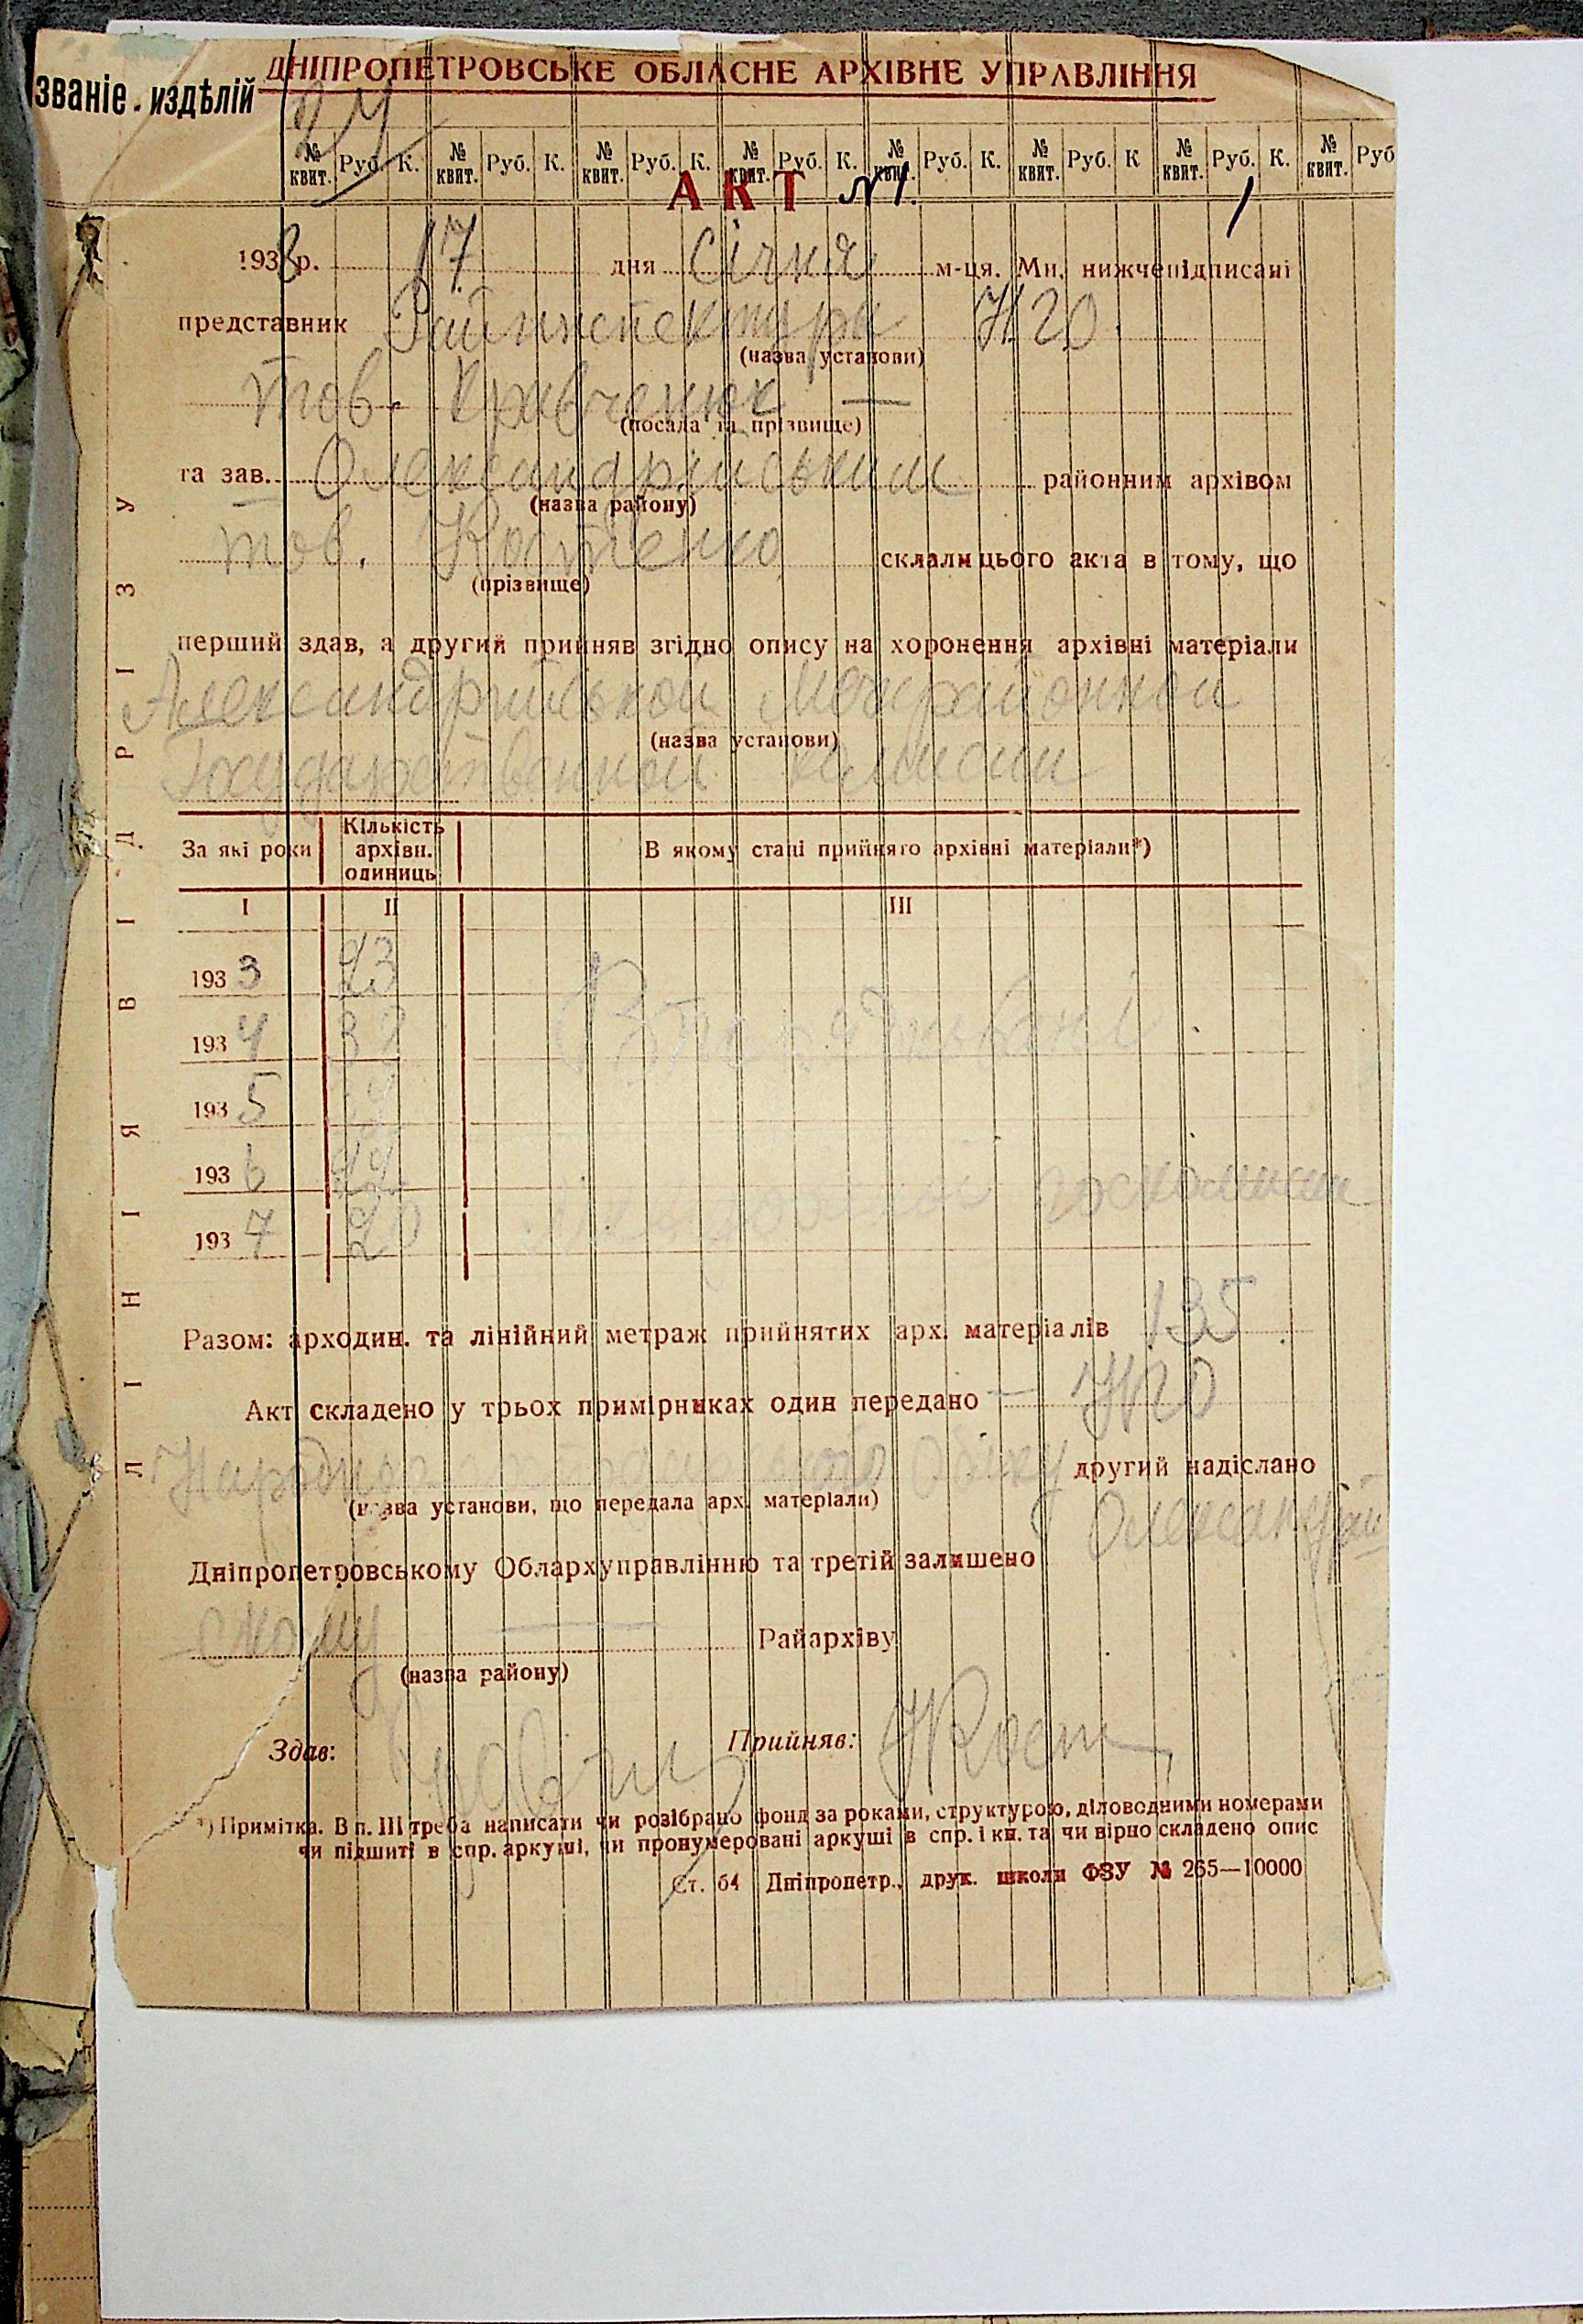 ДНІПРОПЕТРОВСЬКЕ ОБЛАСНЕ АРХІВНЕ УПРАВЛІННЯ
званіе . издѣлій
24
№ квит. Руб. К. № квит. Руб. К. № квит. Руб. К. № квит. Руб. К. № квит. Руб. К. № квит. Руб. К № квит. Руб. К. № квит. Руб
АКТ №1.
1938 р. 17 дня Січня м-ця. Ми, нижчепідписані
представник Райинспектури НГО
(назва установи)
тов. Кравченюк —
(посада та прізвище)
та зав. Олександрійським районним архівом
(назва району)
тов. Костенко склали цього акта в тому, що
(прізвище)
перший здав, а другий прийняв згідно опису на хоронення архівні матеріали
Александрийской Межрайонной
(назва установи)
Государственной комисии
За які роки
Кількість архівн. одиниць
В якому стані прийнято архівні матеріали*)
I II III
1933 23
1934 38
1935
1936
1937 20
госкомисии
Разом: арходин. та лінійний метраж прийнятих арх. матеріалів 135
Акт складено у трьох примірниках один передано — НГО
обліку другий надіслано
(назва установи, що передала арх. матеріали)
Олександрій
Дніпропетровському Облархуправлінню та третій залишено
ському — Райархіву
(назва району)
Здав:
Прийняв: Кост
*) Примітка. В п. III треба написати чи розібрано фонд за роками, структурою, діловодними номерами
чи підшиті в спр. аркуші, чи пронумеровані аркуші в спр. і кн. та чи вірно складено опис
Ст. б4 Дніпропетр., друк. школи ФЗУ № 265—10000
ЛІНІЯ ВІДРІЗУ